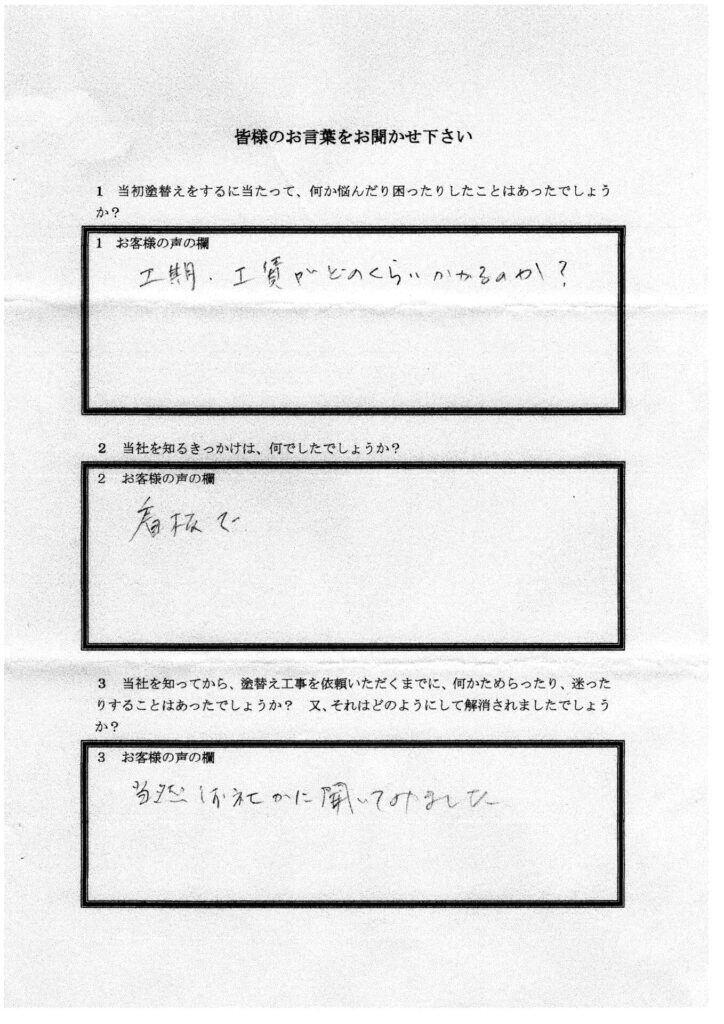 皆様のお言葉をお聞かせ下さい
1 当初塗替えをするに当たって、何か悩んだり困ったりしたことはあったでしょう
か？
1 お客様の声の欄
工期．工賃がどのくらいかかるのか？
2 当社を知るきっかけは、何でしたでしょうか？
2 お客様の声の欄
看板で
3 当社を知ってから、塗替え工事を依頼いただくまでに、何かためらったり、迷った
りすることはあったでしょうか？ 又、それはどのようにして解消されましたでしょう
か？
3 お客様の声の欄
当然 社かに聞いてみました